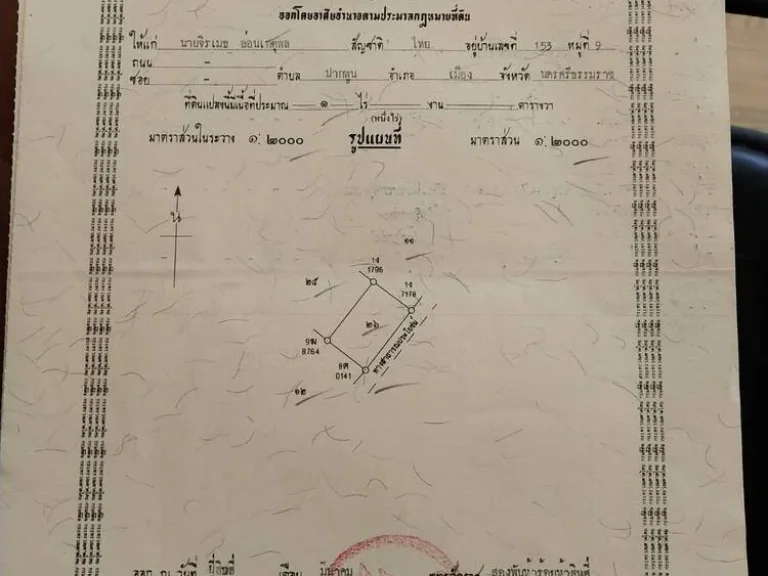 ออกโดยอาศัยอำนาจตามประมวลกฎหมายที่ดิน
ให้แก่ นายจิรเมธ สัญชาติ ไทย อยู่บ้านเลขที่ 153 หมู่ที่ 9
ถนน -
ซอย - ตำบล ปากพูน อำเภอ เมือง จังหวัด นครศรีธรรมราช
ที่ดินแปลงนี้มีเนื้อที่ประมาณ ๑ ไร่ - งาน - ตารางวา
(หนึ่งไร่)
มาตราส่วนในระวาง ๑:๒๐๐๐ รูปแผนที่ มาตราส่วน ๑:๒๐๐๐
น
๑๑
1ง
1796
๒๕
1ง
7178
๒๖
ทางสาธารณประโยชน์
9ฆ
8764
0141
๑๒
ออก ณ วันที่ ยี่สิบสี่ เดือน มีนาคม พุทธศักราช สองพันห้าร้อยห้าสิบสี่